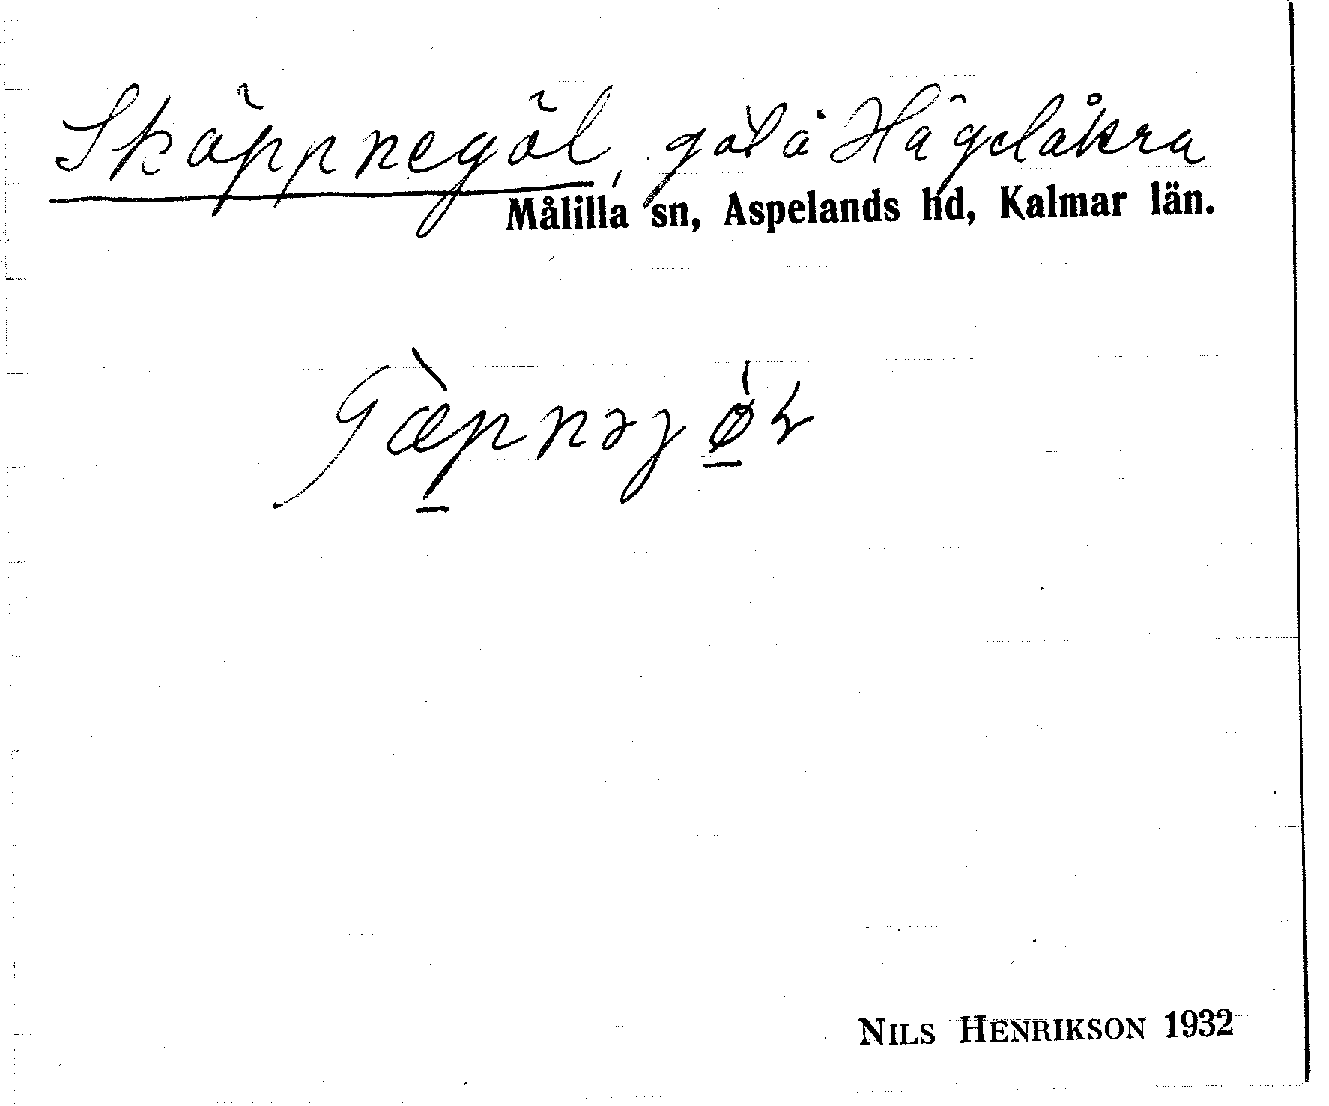 Skäppnegöl, göl å Hägelåkra
Målilla sn, Aspelands hd, Kalmar län.
NILS HENRIKSON 1932